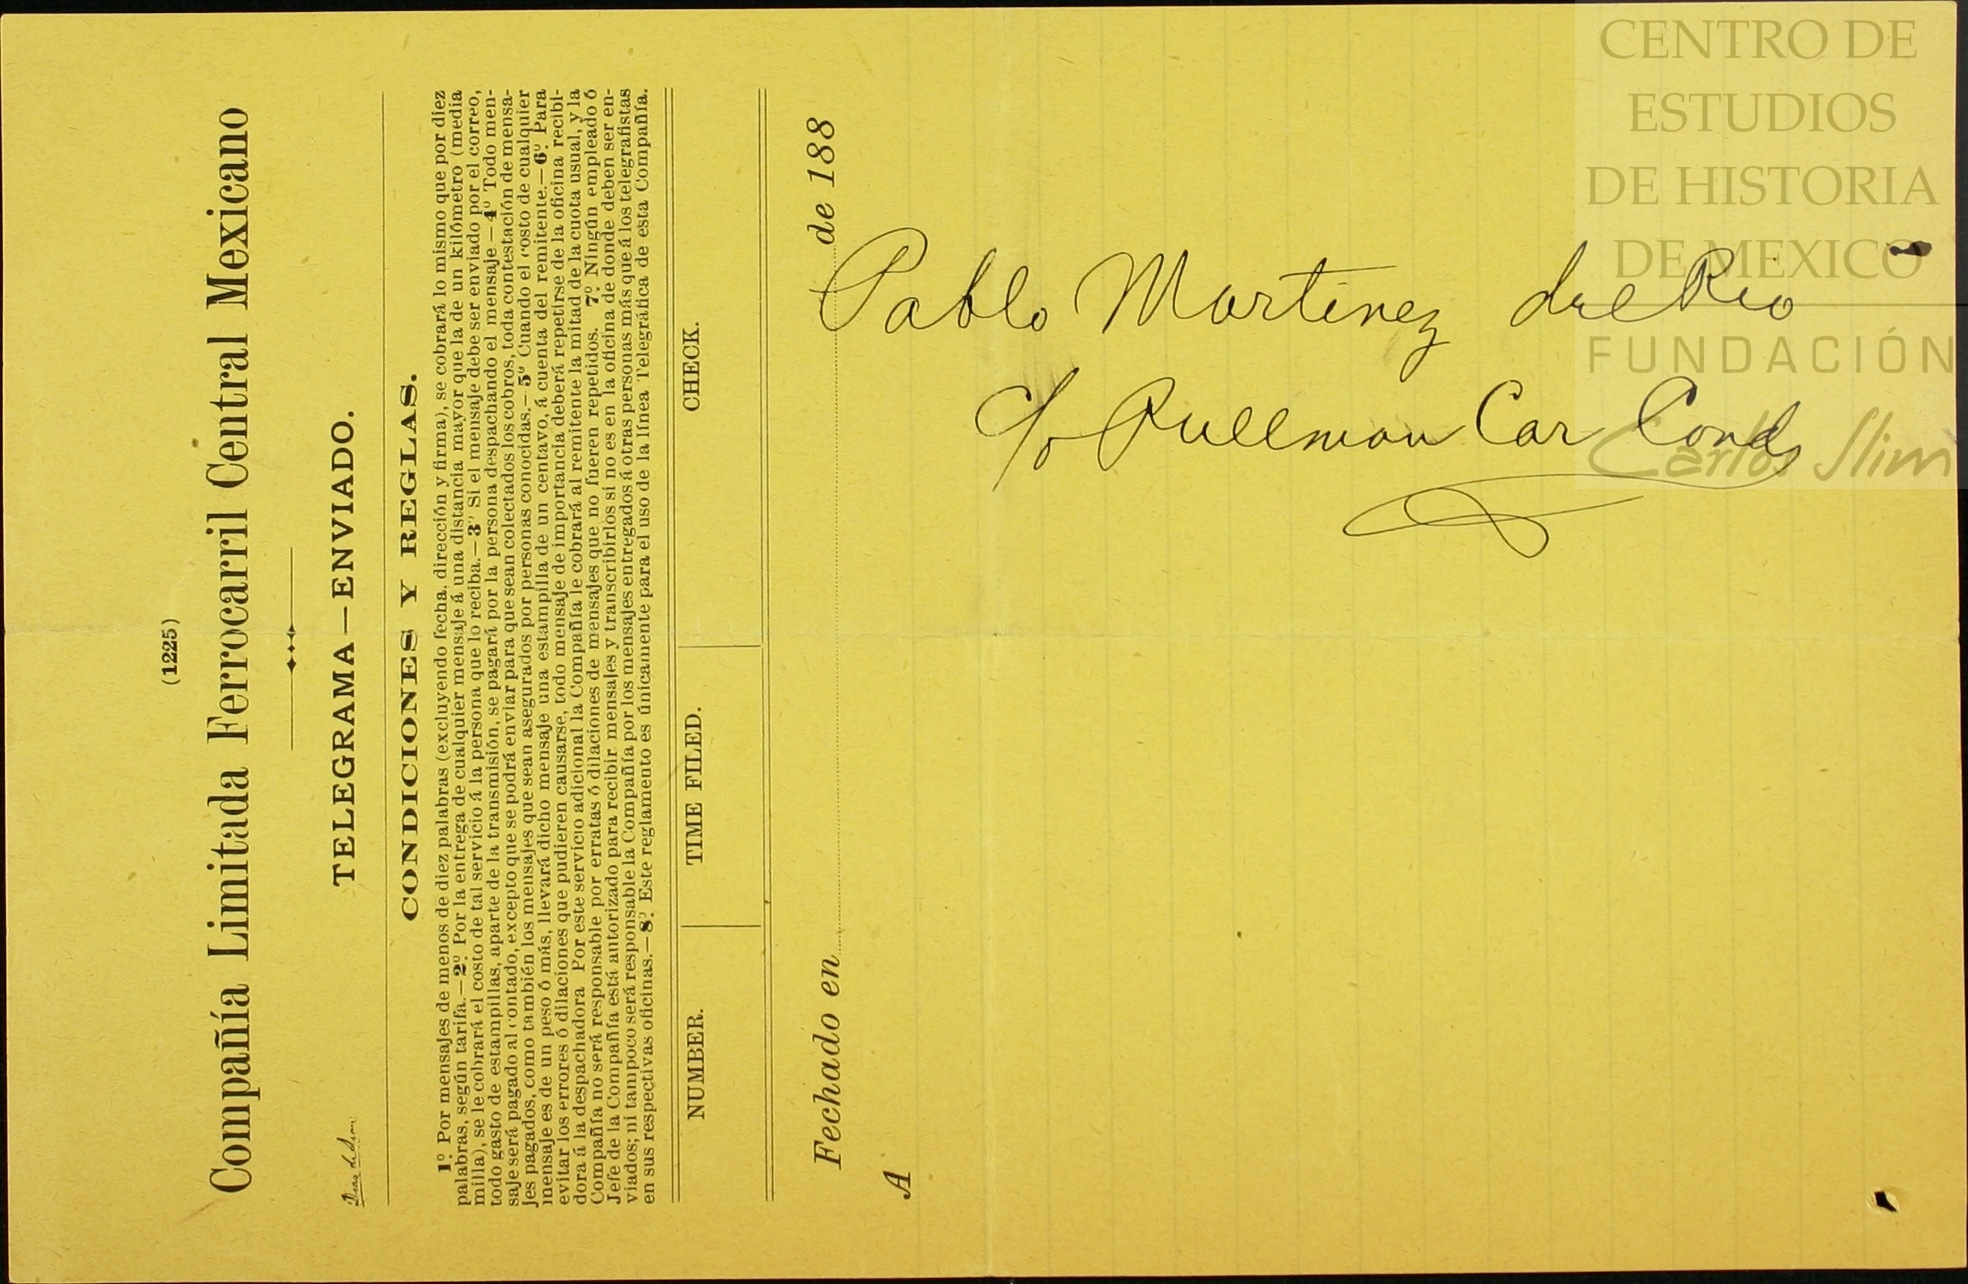 (1225)
Compañía Limitada Ferrocarril Central Mexicano
TELEGRAMA—ENVIADO.
CONDICIONES Y REGLAS.
1º. Por mensajes de menos de diez palabras (excluyendo fecha, dirección y firma), se cobrará lo mismo que por diez
palabras, según tarifa.—2º. Por la entrega de cualquier mensaje á una distancia mayor que la de un kilómetro (media
milla), se le cobrará el costo de tal servicio á la persona que lo reciba.—3º Si el mensaje debe ser enviado por el correo,
todo gasto de estampillas, aparte de la transmisión, se pagará por la persona despachando el mensaje.—4º Todo men-
saje será pagado al contado, excepto que se podrá enviar para que sean colectados los cobros, toda contestación de mensa-
jes pagados, como también los mensajes que sean asegurados por personas conocidas.—5º Cuando el costo de cualquier
mensaje es de un peso ó más, llevará dicho mensaje una estampilla de un centavo, á cuenta del remitente.—6º. Para
evitar los errores ó dilaciones que pudieren causarse, todo mensaje de importancia deberá repetirse de la oficina recibi-
dora á la despachadora Por este servicio adicional la Compañía le cobrará al remitente la mitad de la cuota usual, y la
Compañía no será responsable por erratas ó dilaciones de mensajes que no fueren repetidos. 7º. Ningún empleado ó
Jefe de la Compañía está autorizado para recibir mensajes y transcribirlos si no es en la oficina de donde deben ser en-
viados; ni tampoco será responsable la Compañía por los mensajes entregados á otras personas más que á los telegrafistas
en sus respectivas oficinas.—8º. Este reglamento es únicamente para el uso de la línea Telegráfica de esta Compañía.
NUMBER. TIME FILED. CHECK.
Fechado en de 188
A
Pablo Martinez del Rio
c/o Pullman Car Cond
CENTRO DE
ESTUDIOS
DE HISTORIA
DE MEXICO
FUNDACIÓN
Carlos Slim